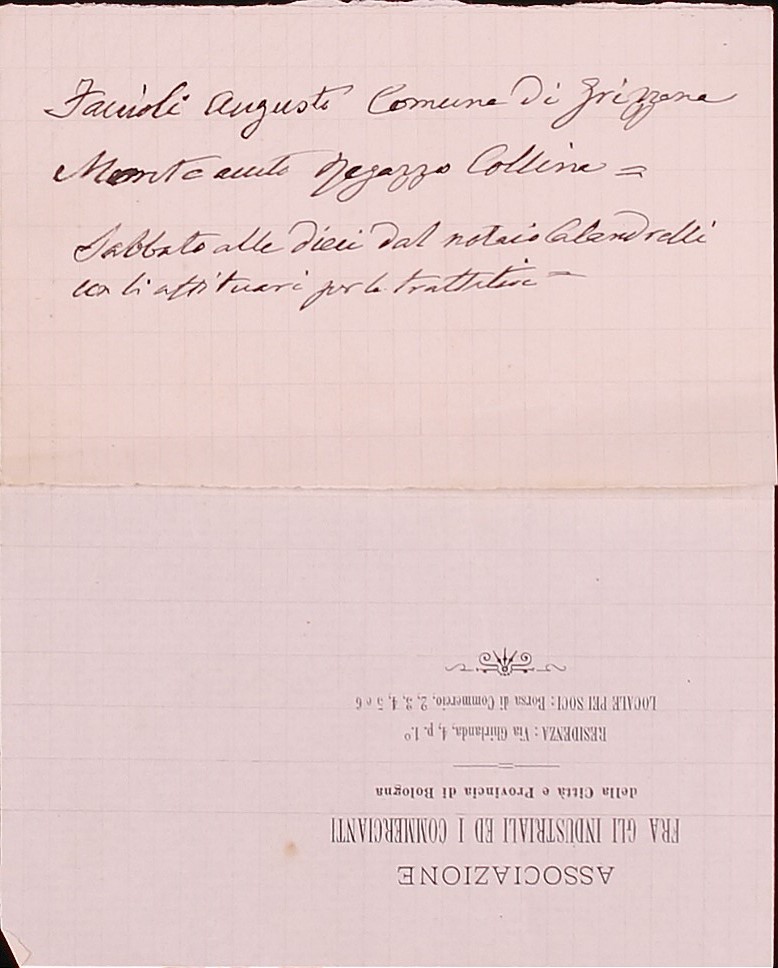 Facioli Augusto Comune Di Grizzana
Montecauto Ragazzo Collina =
Sabbato alle dieci dal notaio Calandrelli
con li affituari per le trattative =
ASSOCIAZIONE
FRA GLI INDUSTRIALI ED I COMMERCIANTI
della Città e Provincia di Bologna
RESIDENZA: Via Ghirlanda, 4, p. 1.º
LOCALE PEI SOCI: Borsa di Commercio, 2, 3, 4, 5 e 6